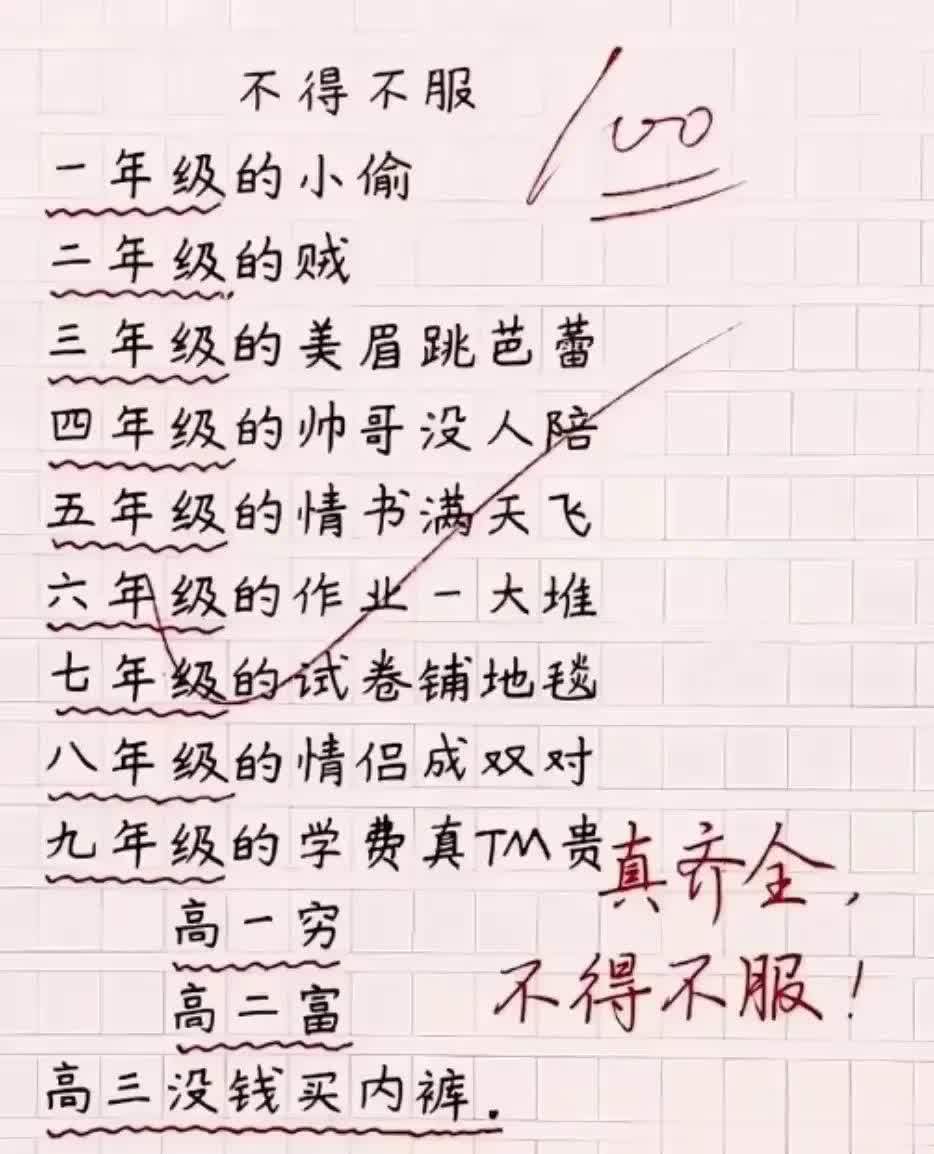 不得不服
100
一年级的小偷
二年级的贼
三年级的美眉跳芭蕾
四年级的帅哥没人陪
五年级的情书满天飞
六年级的作业一大堆
七年级的试卷铺地毯
八年级的情侣成双对
九年级的学费真TM贵
真齐全，
高一穷
不得不服！
高二富
高三没钱买内裤.